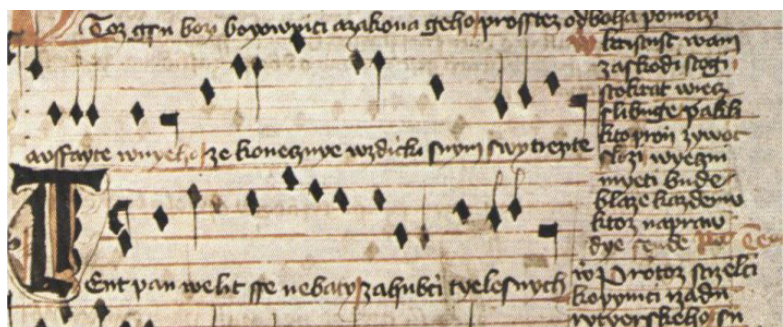 Toz gsu bozi boyownici azakona geho prosstez odboha pomoczi
aussayte wnyeho ze konecznye wzdicki snym swytezite
TEnt pan welit sse nebaty zahubci tyelesnych
kristust wam
zaskodi stogi
stokrat wiecz
slibuge pakli
kto pron zywot
slozi wyeczni
myeti bude
blaze kazdemu
ktoz napraw
dye sende
Protoz strzelci
kopynici rzadu
rytierskeho su